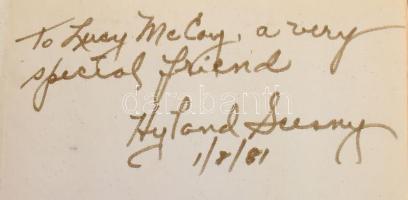 To Lucy McCoy, a very
special friend
darabanth
Hyland
1/8/81